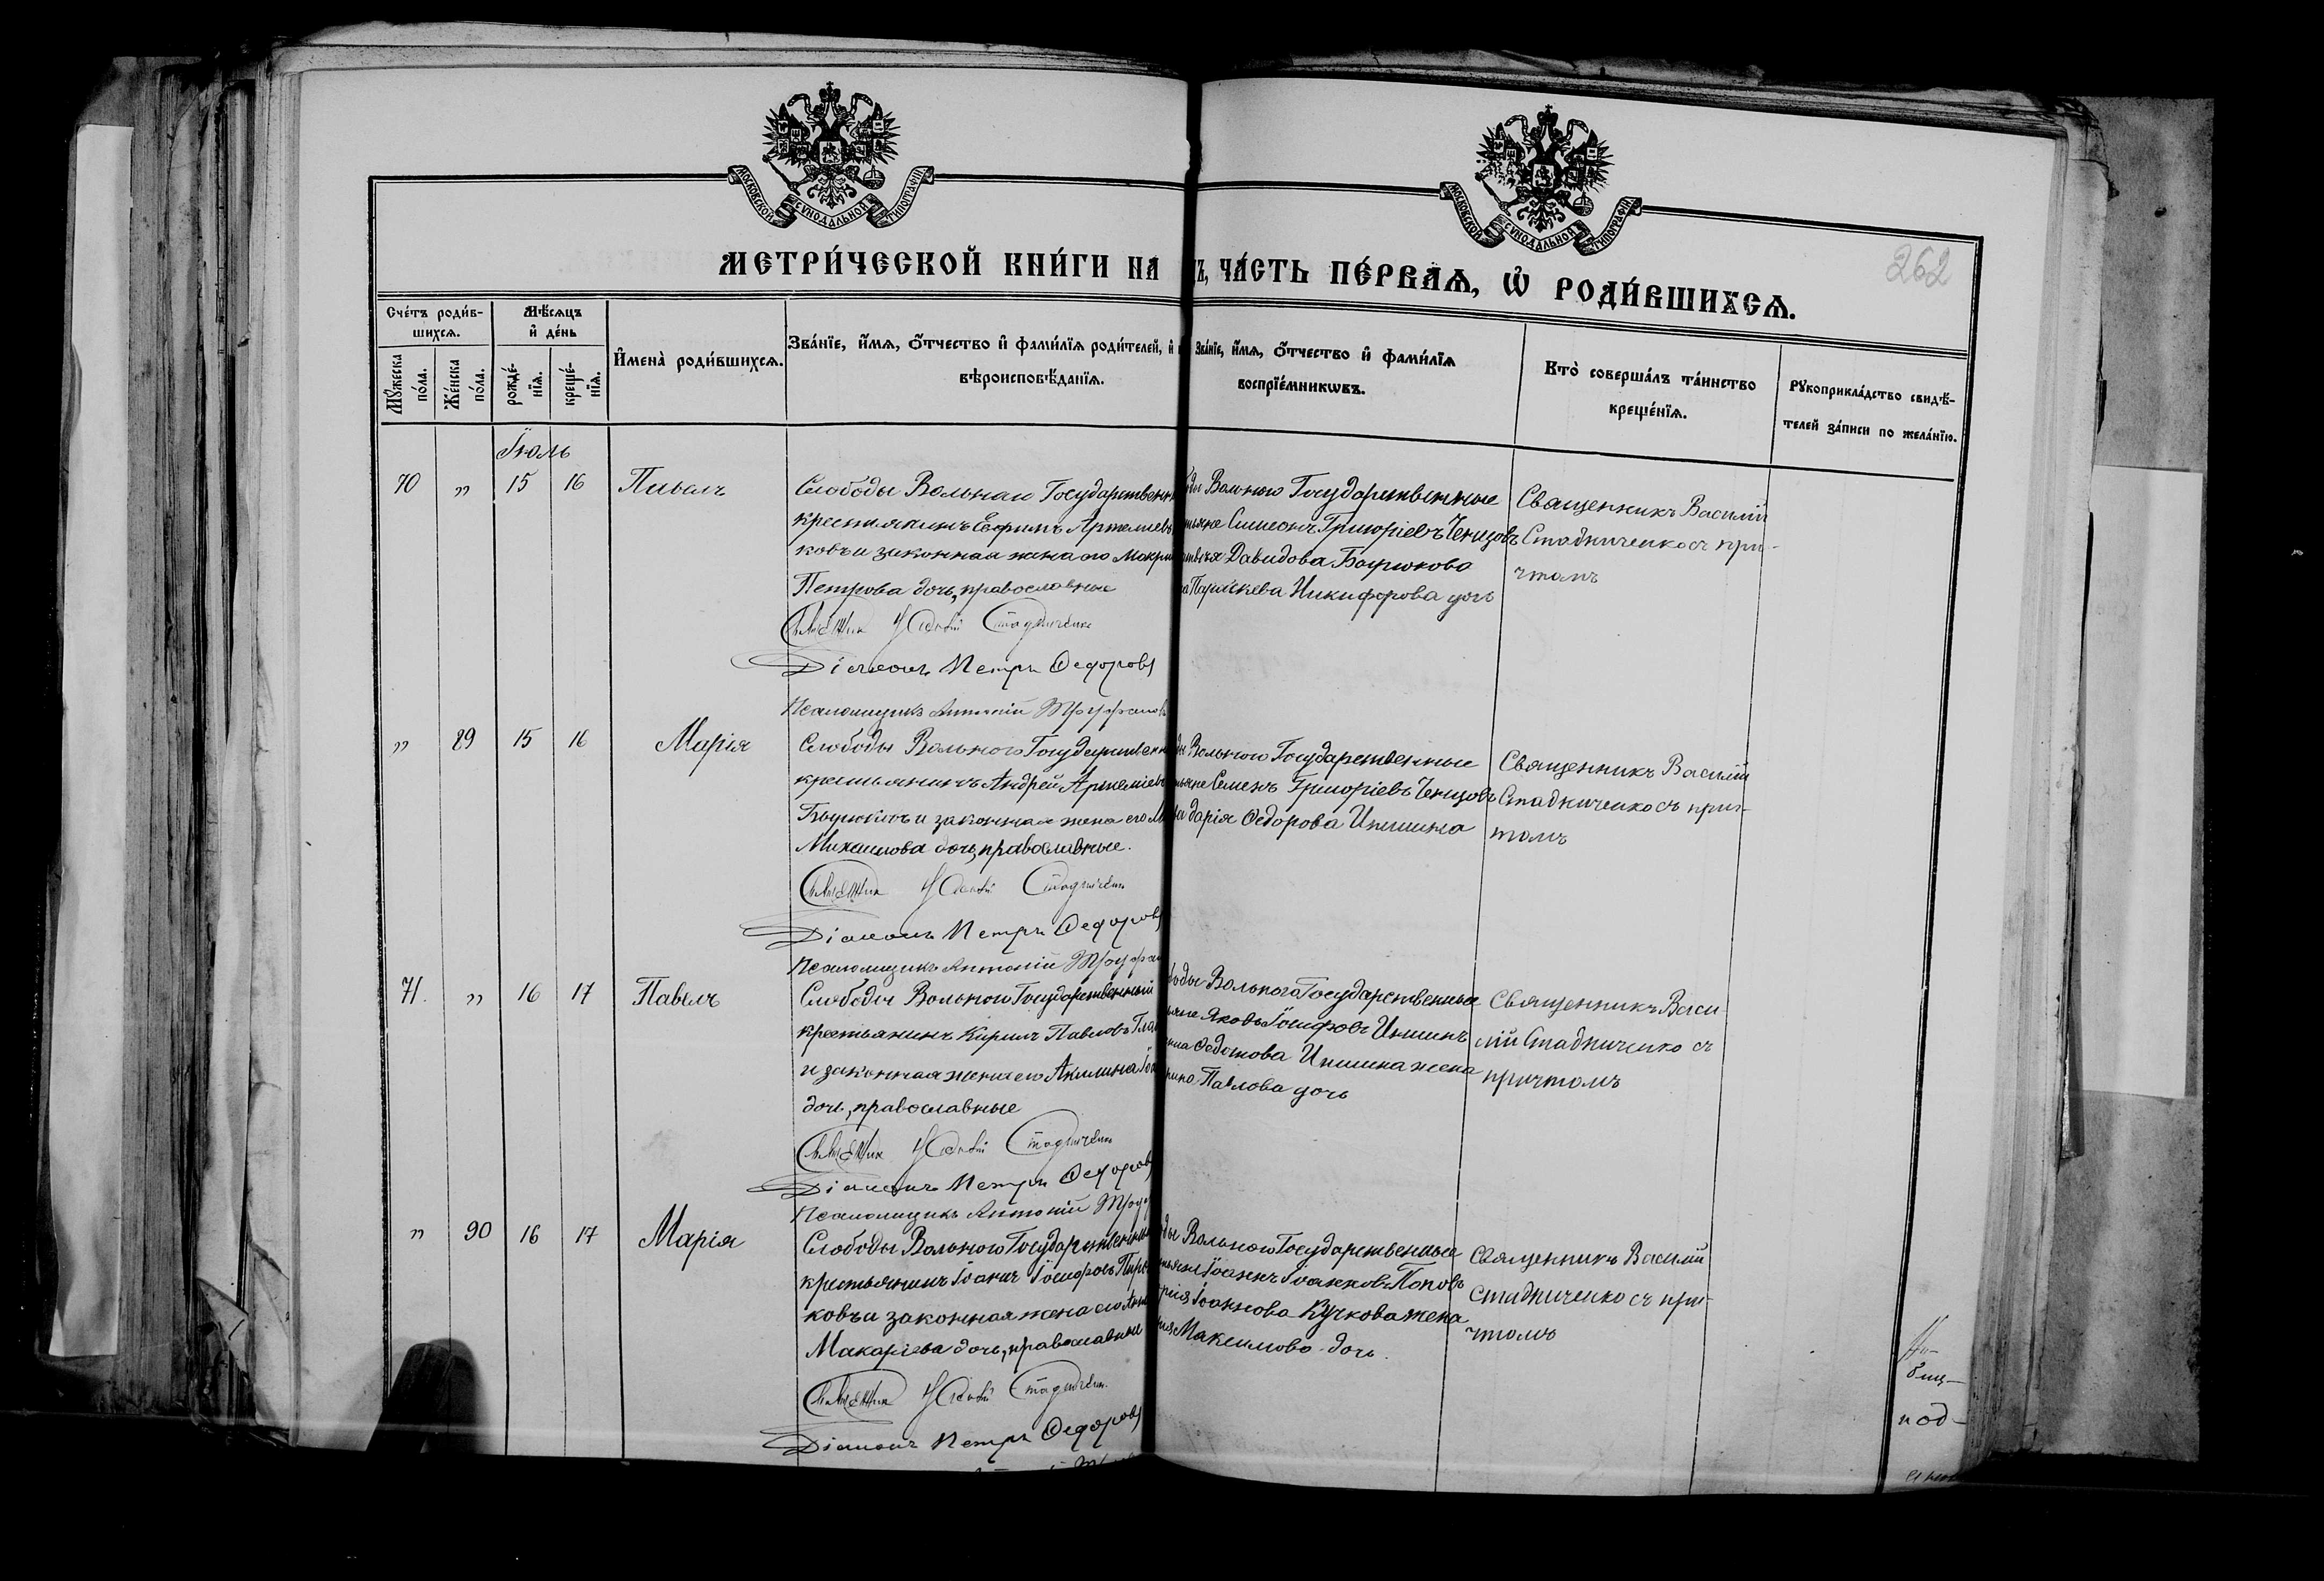 МОСКОВСКОЙ СУНОДАЛЬНОЙ ТИПОГРАФІИ
МОСКОВСКОЙ СУНОДАЛЬНОЙ ТИПОГРАФІИ
262
МЕТРИ́ЧЕСКОЙ КНИ́ГИ НА Ъ, ЧА́СТЬ ПЕ́РВАѦ, Ѡ҆ РОДИ́ВШИХСѦ.
Сче́тъ роди́в-
шихсѧ.
Мѣ́сѧцъ
и҆ де́нь
Мꙋ́жеска
по́ла.
Же́нска
по́ла.
рожде́-
нїѧ.
креще́-
нїѧ.
И҆мена̀ роди́вшихсѧ.
Зва́нїе, и҆́мѧ, ѻ҆́тчество и҆ фами́лїѧ роди́телей, и҆
вѣроисповѣ́данїѧ.
Зва́нїе, и҆́мѧ, ѻ҆́тчество и҆ фами́лїѧ
воспрїе́мникѡвъ.
Кто̀ соверша́лъ та́инство
креще́нїѧ.
Рꙋкоприкла́дство свидѣ́-
телей за́писи по жела́нїю.
Іюль
70 „ 15 16 Павелъ
Слободы Вольнаи Государственн
крестьянинъ Ефимъ Артемиевъ
ковъ и законная жена его Макри
Петрова дочь, православные
Священник Василій Стадниченко
Діаконъ Петръ Федоровъ
Псаломщикъ Антоній
ды Вольного Государственные
тьяне Симеонъ Григоріевъ Ченцовъ
Давидова Бирюкова
Параскева Никифорова дочь
Священникъ Василій
Стадниченко съ при-
чтомъ
„ 89 15 16 Марія
Слободы Вольного Государственн
крестьянинъ Андрей Артеміевъ
Бирюковъ и законная жена его
Михаилова дочь, православные.
Священник Василій Стадниченко
Діаконъ Петръ Федоровъ
Псаломщикъ Антоній
ды Вольного Государственные
тьяне Семенъ Григоріевъ Ченцовъ
Дарія Федорова Иншина
Священникъ Василій
Стадниченко съ прич-
томъ
71. „ 16 17 Павелъ
Слободы Вольного Государственный
крестьянинъ Кирилъ Павловъ
и законная жена его Акилина
дочь, православные
Священник Василій Стадниченко
Діаконъ Петръ Федоровъ
Псаломщикъ Антоній
боды Вольного Государственные
тьяне Яковъ Іосифовъ Иншинъ
Федотова Иншина жена
Павлова дочь
Священникъ Васи
лій Стадниченко съ
причтомъ
„ 90 16 17 Марія
Слободы Вольного Государственный
крестьянинъ Іоанъ Іосифовъ
ковъ и законная жена его
Макарьева дочь, православные
Священник Василій Стадниченко
Діаконъ Петръ Федоровъ
ды Вольного Государственные
тьяне Іоаннъ Іоанновъ Поповъ
рія Іоаннова Кучкова жена
Максимова дочь.
Священникъ Василій
Стадниченко съ при-
чтомъ
под-